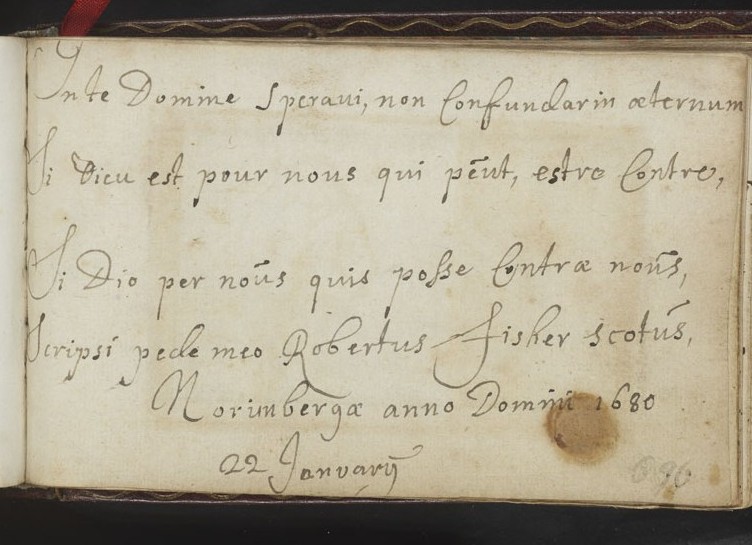 In te Domine Speravi, non Confundar in æternum
Si Dieu est pour nous qui pēut, estre Contre,
Si Dio per noūs quis posse Contræ noūs,
Scripsi pede meo Robertus Fisher scotūs,
Norimbergæ anno Domini 1680
22 Januarÿ